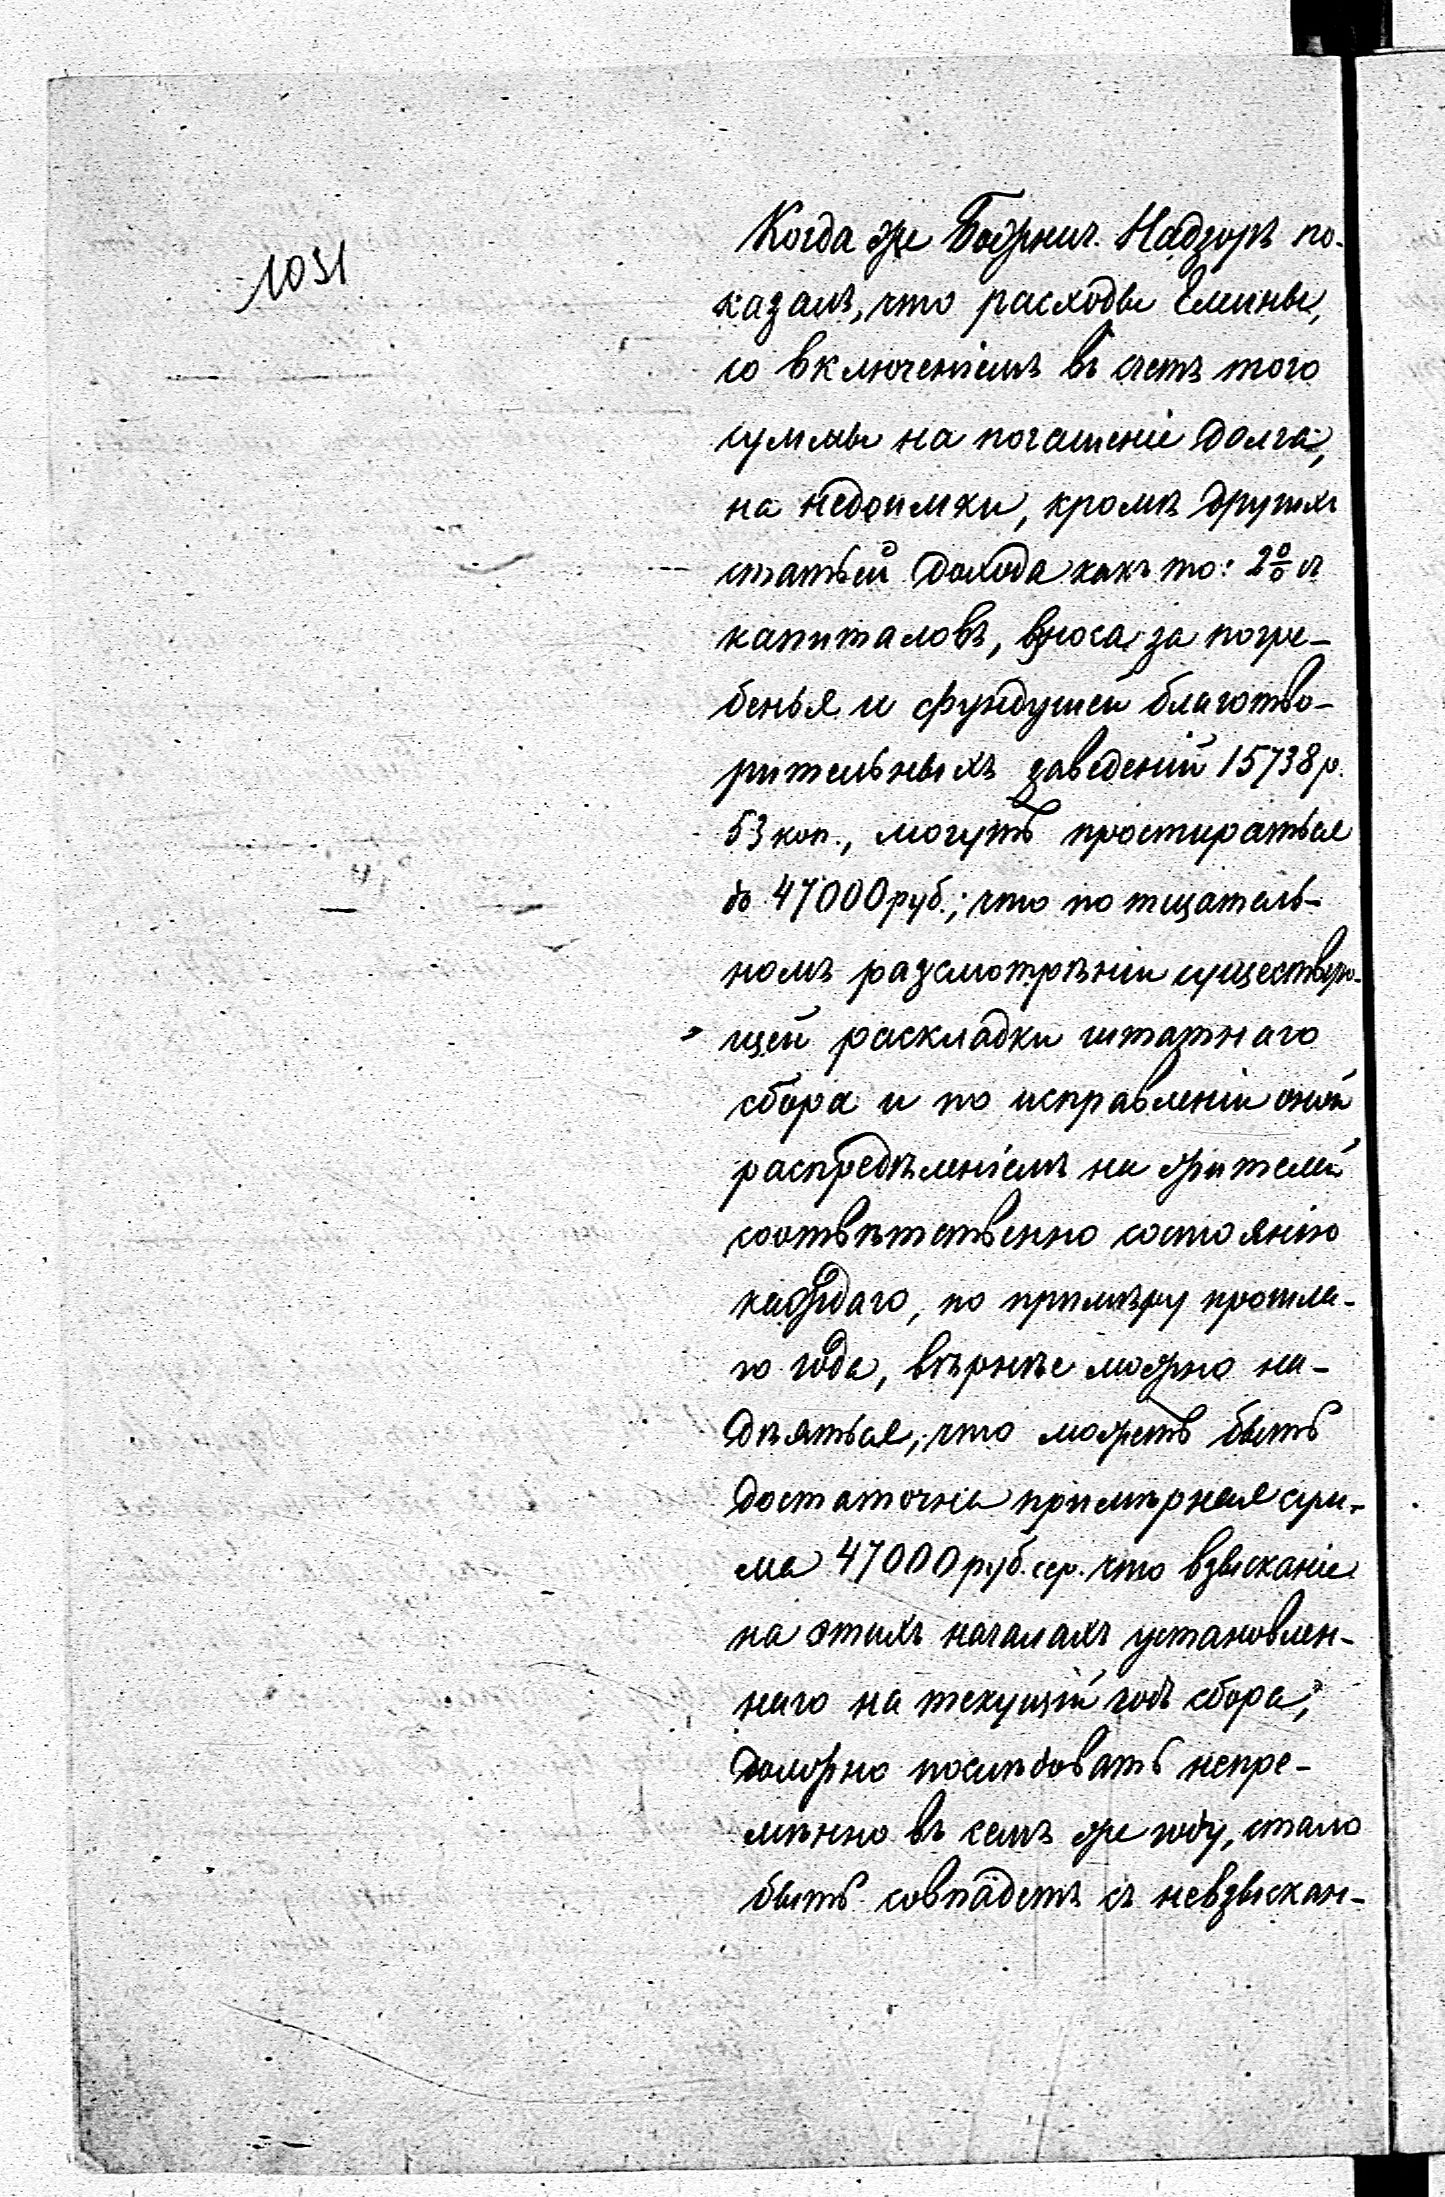 1031
Когда же Божнич. Надзоръ по-
казалъ, что расходы Гмины,
со включеніемъ въ счетъ того
суммы на погашеніе долга,
на недоимки, кромѣ другихъ
статьей дохода какъ то: 2% съ
капиталовъ, взноса за погре-
бенья и фундушей благотво-
рительныхъ заведеній 15738 р.
53 коп., могутъ простираться
до 47000 руб.; что по тщатель-
номъ разсмотрѣніи существую-
щей раскладки штатнаго
сбора и по исправленіи оной
распредѣленіемъ на жителей
соотвѣтственно состоянію
каждаго, по примѣру прошла-
го года, вѣрнѣе можно на-
дѣяться, что можетъ быть
достаточна примѣрная сум-
ма 47000 руб. сер. что взысканіе
на этихъ началахъ установлен-
наго на текущій годъ сбора,
должно послѣдовать непре-
мѣнно въ семъ же году, стало
быть совпадетъ съ невзыскан-